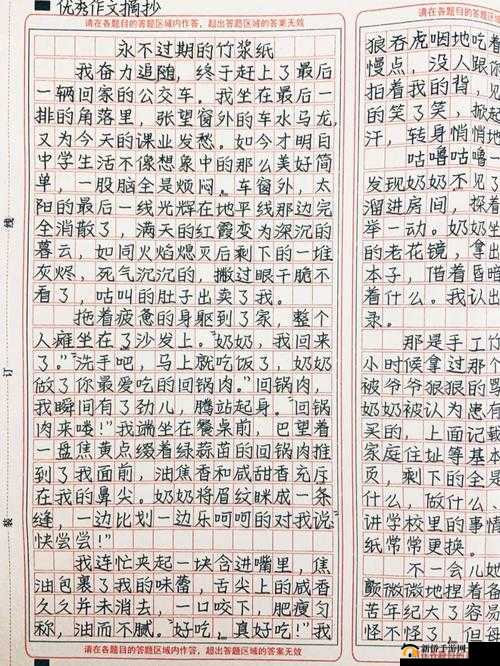 优秀作文摘抄
请在各题目的答题区域内作答，超出答题区域的答案无效
永不过期的竹浆纸
我奋力追随，终于赶上了最后
一辆回家的公交车。我坐在最后一
排的角落里，张望窗外的车水马龙，
又为今天的课业发愁。如今才明白
中学生活不像想象中的那么美好简
单，一股脑全是烦闷。车窗外，太
阳的最后一线光辉在地平线那边完
全消散了，满天的红霞变为深沉的
暮云，如同火焰熄灭后剩下的一堆
灰烬，死气沉沉的，撇过眼干脆不
看了，咕叫的肚子出卖了我。
拖着疲惫的身躯到了家，整个
人瘫坐在了沙发上。"奶奶，我回来
了。""洗手吧，马上就吃饭了，奶奶
做了你最爱吃的回锅肉。"回锅肉，
我瞬间有了劲儿，腾站起身。"回锅
肉来喽！"我端坐在餐桌前，巴望着
一盘焦黄点缀着绿蒜苗的回锅肉推
到了我面前，油焦香和咸甜香充斥
在我的鼻尖。奶奶将眉纹眯成一条
缝，一边比划一边乐呵呵的对我说"
快尝尝！"
我连忙夹起一块含进嘴里，焦
油包裹了我的味蕾，舌尖上的咸香
久久并未消去，一口咬下，肥瘦匀
称，油而不腻。"好吃，真好吃！"我
请在各题目的答题区域内作答，超出答题区域的答案无效
线
订
装
请在各题目的答题区
狼吞虎咽地吃着
慢点，没人跟你
拍着我的背，见
的笑了笑，掀起
汗，转身悄悄地
咕噜咕噜
发现奶奶不见了
溜进房间，探着
举一动。奶奶坐
的老花镜，拿出
本子，借着昏暗
着什么。我认出
录。
那是手工竹
小时候拿过那个
被爷爷狠狠的骂
奶奶被认为患有
买的，上面记载
家庭住址等基本
页，剩下的全是
什么，做什么，
讲学校里的事情
纸常常更换。
不一会儿她
颤微微地捏着备
苦年纪大了容易
怪不怪了，但每
请在各题目的答题区域
新侨手游网